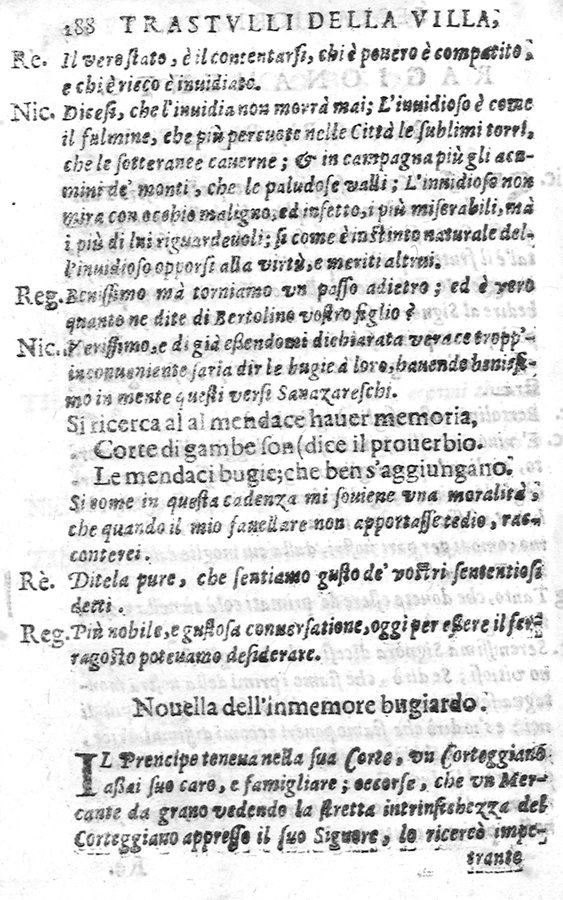 188 TRASTVLLI DELLA VILLA,
Re. Il vero stato, è il contentarsi, chi è pouero è compatito,
e chi è ricco è inuidiato.
Nic. Dicesi, che l'inuidia non morrà mai; L'inuidioso è come
il fulmine, che più percuote nelle Città le sublimi torri,
che le sotteranee cauerne; & in campagna più gli acu-
mini de' monti, che le paludose valli; L'inuidioso non
mira con occhio maligno, ed infetto, i più miserabili, mà
i più di lui riguardeuoli; si come è instinto naturale del-
l'inuidioso opporsi alla virtù, e meriti altrui.
Reg. Benissimo mà torniamo vn passo adietro; ed è vero
quanto ne dite di Bertolino vostro figlio?
Nic. Verissimo, e di già essendomi dichiarata verace tropp'
inconueniente saria dir le bugie à loro, hauendo benis-
mo in mente questi versi Sanazareschi.
Si ricerca al al mendace hauer memoria,
Corte di gambe son (dice il prouerbio.
Le mendaci bugie; che ben s'aggiungano.
Si come in questa cadenza mi souiene vna moralità,
che quando il mio fauellare non apportasse tedio, rac-
conterei.
Rè. Ditela pure, che sentiamo gusto de' vostri sententiosi
detti.
Reg. Più nobile, e gustosa conuersatione, oggi per essere il fer-
ragosto poteuamo desiderare.
Nouella dell'inmemore bugiardo.
IL Prencipe teneua nella sua Corte, vn Corteggiano
assai suo caro, e famigliare; occorse, che vn Mer-
cante da grano vedendo la stretta intrinsichezza del
Corteggiano appresso il suo Signore, lo ricercò impe-
trante